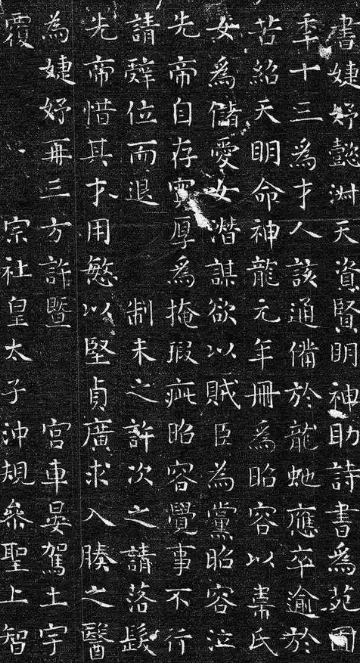 書婕妤懿淑天資賢明神助詩書爲苑囿
秊十三爲才人該通備於龍虵應卒逾於
苦紹天明命神龍元年冊爲昭容以韋氏
女爲儲愛女潛謀欲以賊臣爲黨昭容泣
先帝自存寬厚爲掩瑕疵昭容覺事不行
請辭位而退 制未之許次之請落髮
先帝惜其才用慜以堅貞廣求入腠之醫
爲婕妤再三方許暨 宮車晏駕土宇
覆 宗社皇太子沖規參聖上智